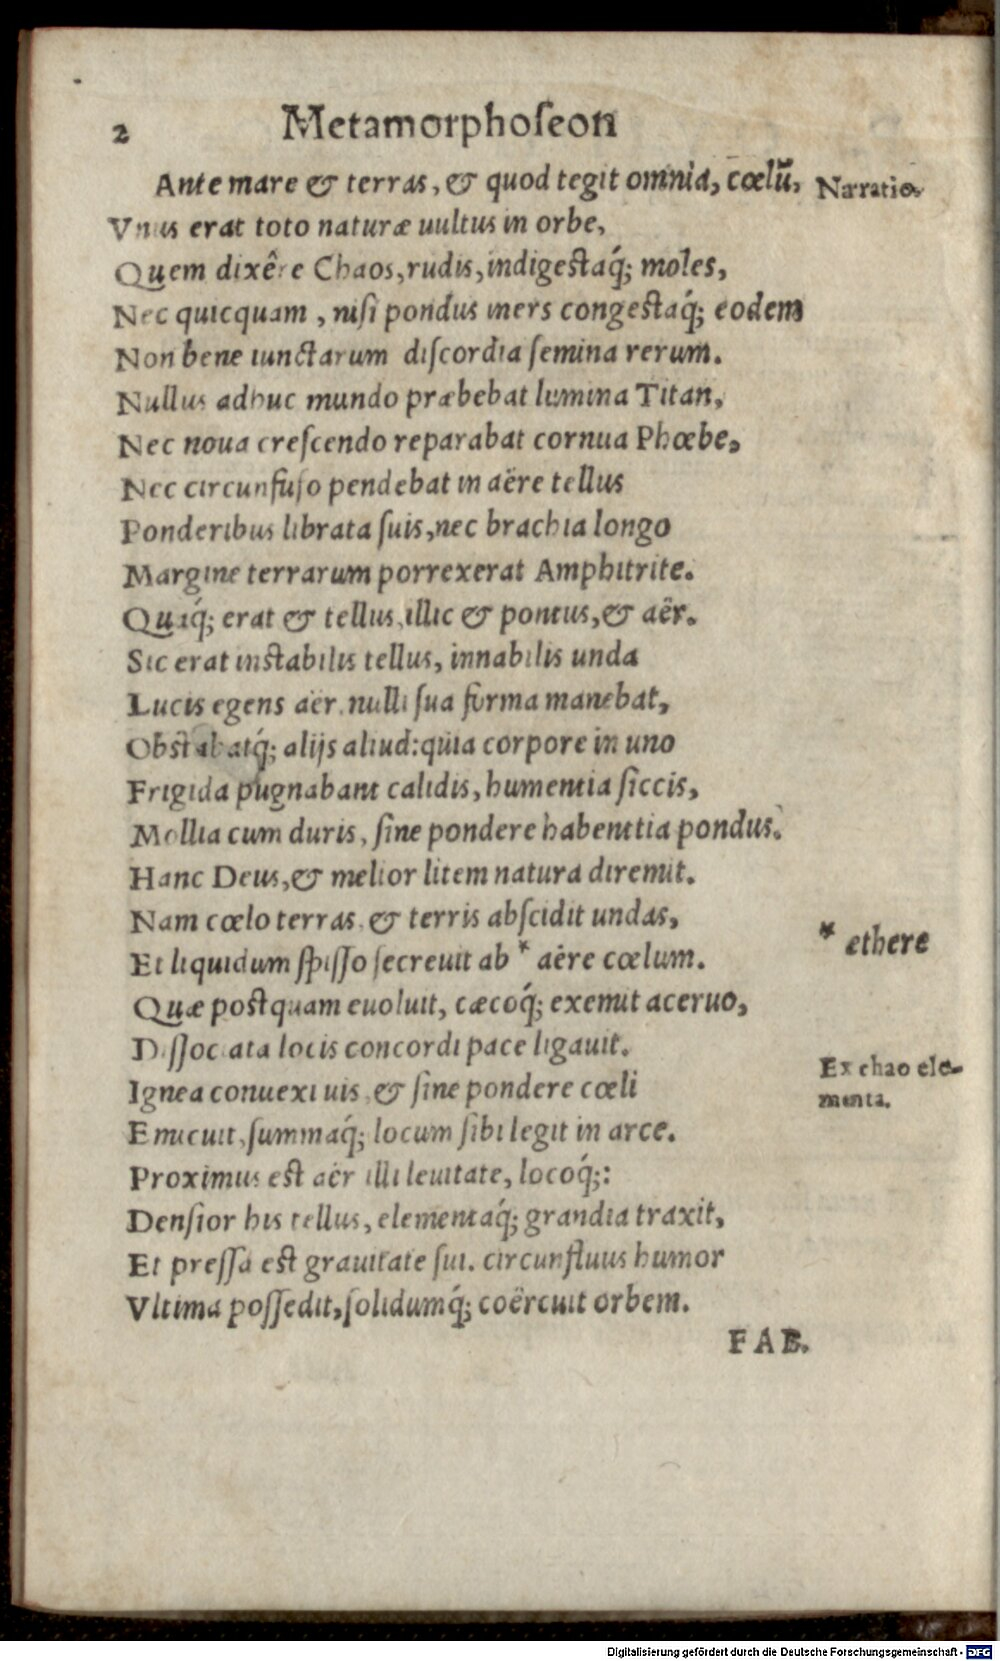 2 Metamorphoſeon
Ante mare & terras, & quod tegit omnia, cœlũ, Narratio.
Vnus erat toto naturæ uultus in orbe,
Quem dixêre Chaos, rudis, indigestaq́; moles,
Nec quicquam, niſi pondus iners congestaq́; eodem
Non bene iunctarum diſcordia ſemina rerum.
Nullus adhuc mundo præbebat lumina Titan,
Nec noua creſcendo reparabat cornua Phœbe,
Nec circunfuſo pendebat in aëre tellus
Ponderibus librata ſuis, nec brachia longo
Margine terrarum porrexerat Amphitrite.
Quaq́; erat & tellus, illic & pontus, & aër.
Sic erat instabilis tellus, innabilis unda
Lucis egens aër. nulli ſua forma manebat,
Obstabatq́; alijs aliud: quia corpore in uno
Frigida pugnabant calidis, humentia ſiccis,
Mollia cum duris, ſine pondere habenttia pondus.
Hanc Deus, & melior litem natura diremit.
Nam cœlo terras, & terris abſcidit undas,
Et liquidum ſpiſſo ſecreuit ab * aëre cœlum.
* ethere
Quæ postquam euoluit, cæcoq́; exemit aceruo,
Diſſociata locis concordi pace ligauit.
Ex chao ele-
menta.
Ignea conuexi uis, & ſine pondere cœli
Emicuit, ſummaq́; locum ſibi legit in arce.
Proximus est aër illi leuitate, locoq́;:
Denſior his tellus, elementaq́; grandia traxit,
Et preſſa est grauitate ſui. circunfluus humor
Vltima poſſedit, ſolidumq́; coërcuit orbem.
FAB.
Digitalisierung gefördert durch die Deutsche Forschungsgemeinschaft - DFG